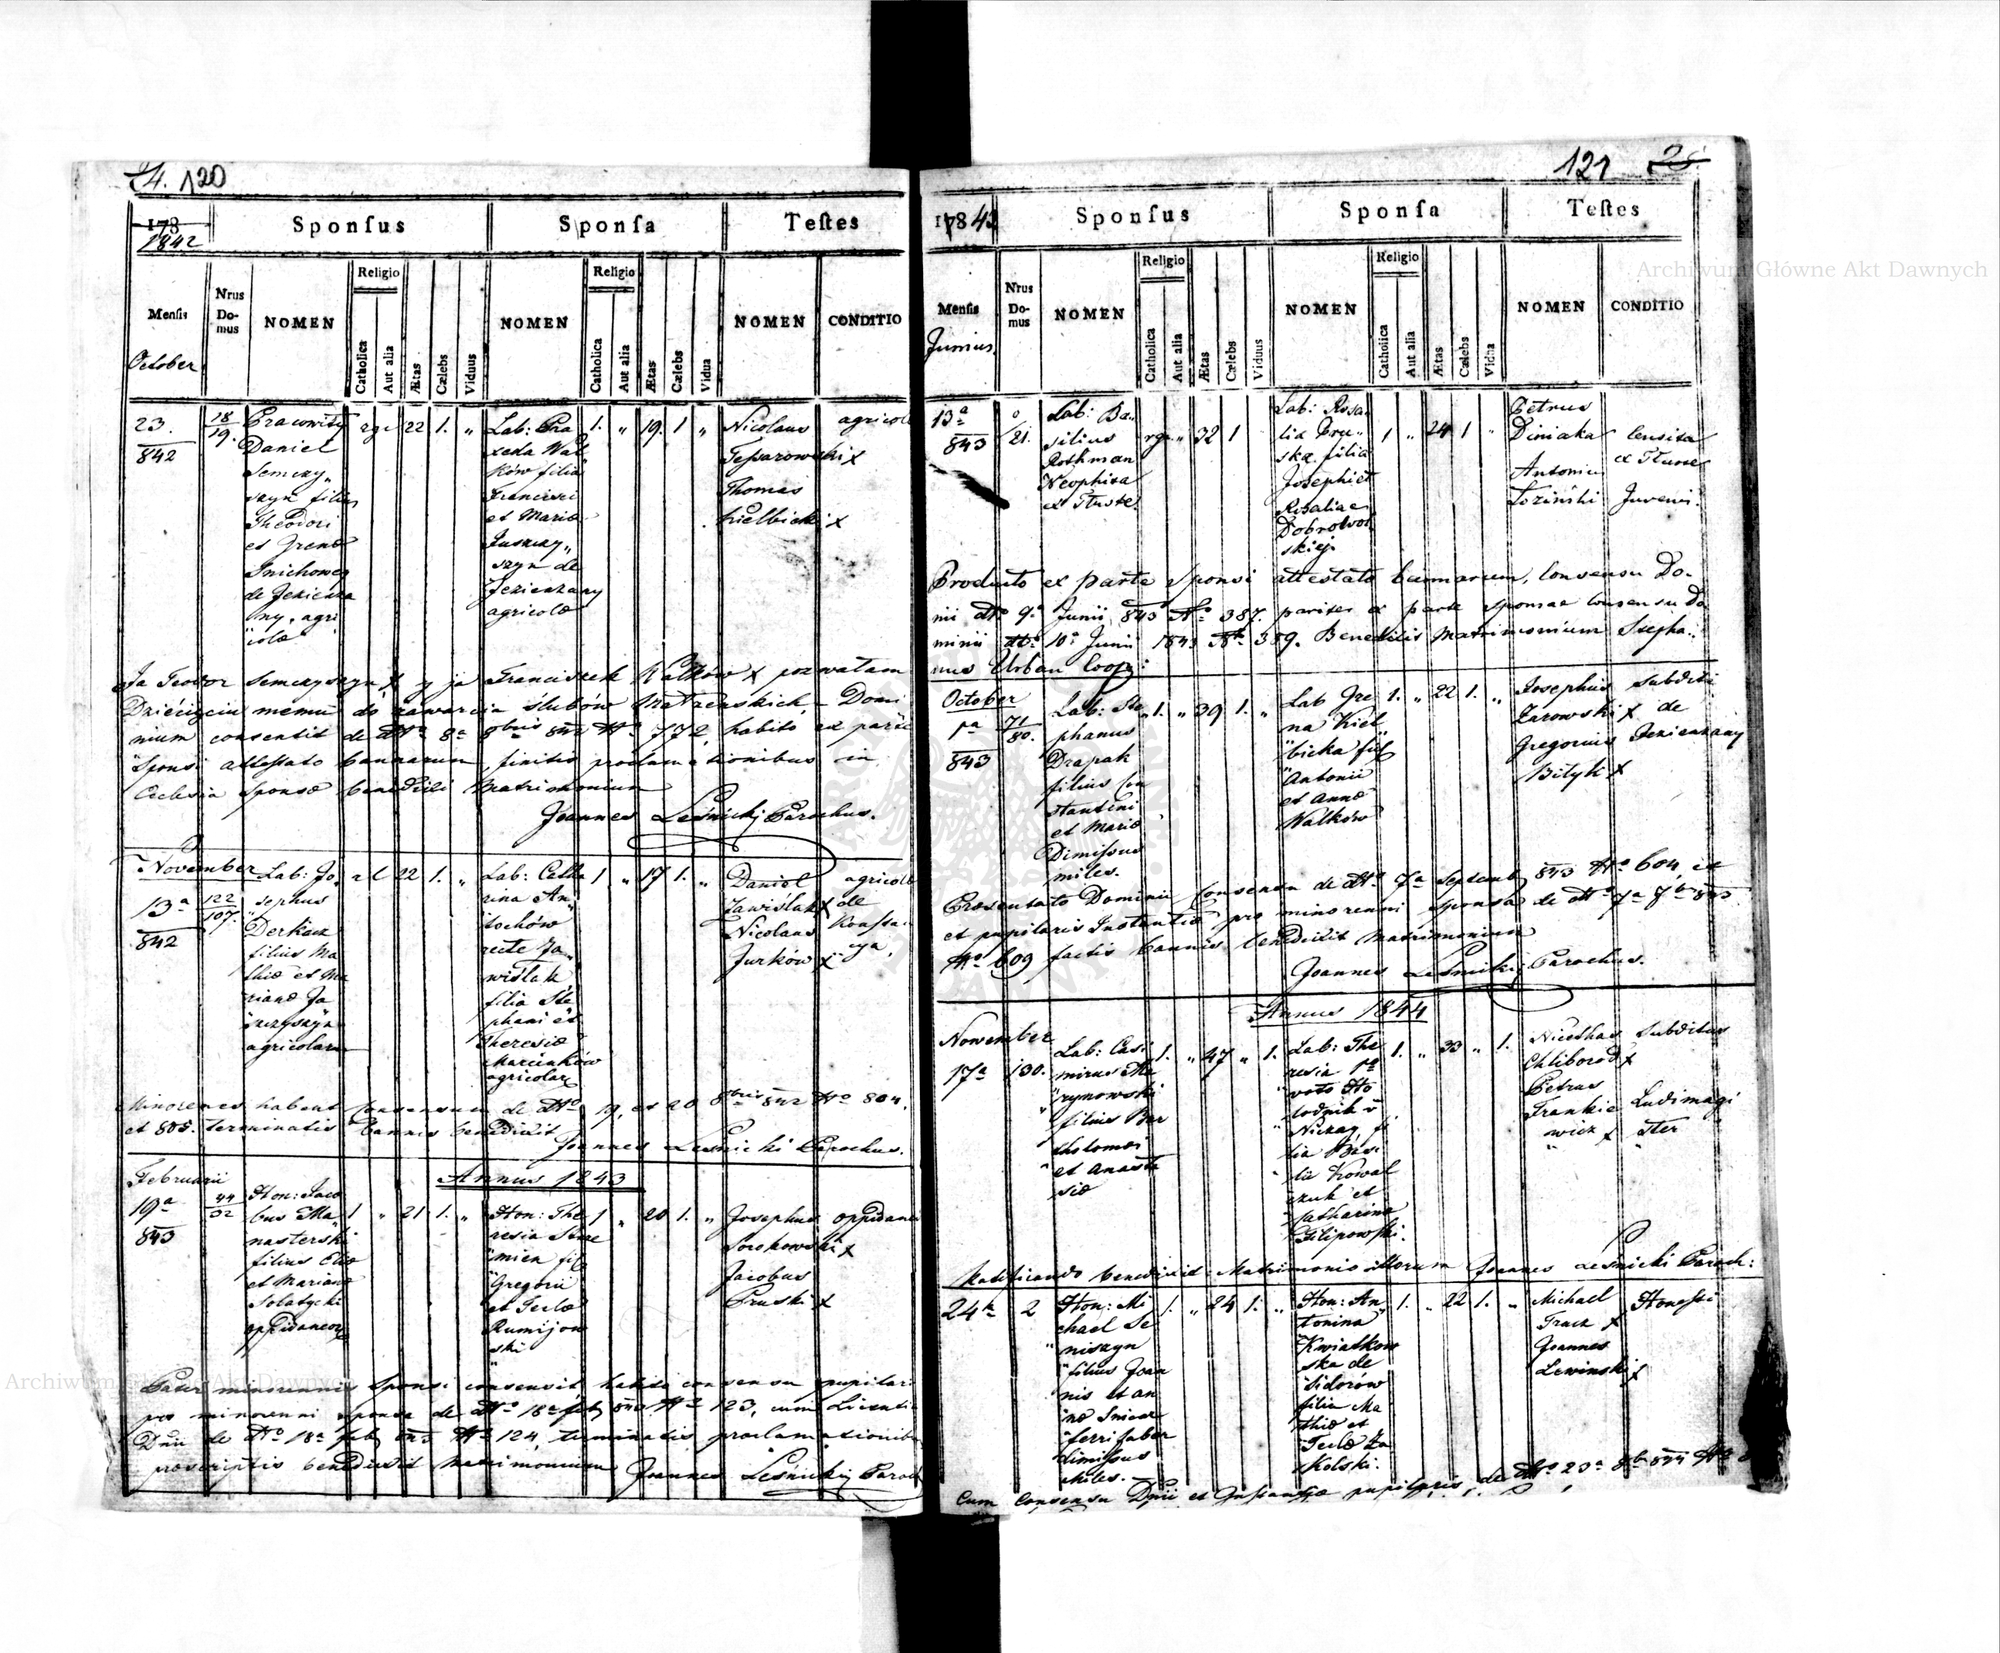 24. 120
1842
Sponſus
Sponſa
Teſtes
Menſis
Nrus Domus
NOMEN
Religio
Catholica
Aut alia
Ætas
Cælebs
Viduus
NOMEN
Religio
Catholica
Aut alia
Ætas
Cælebs
Vidua
NOMEN
CONDITIO
October
23.
842
18
19.
Pracowity
Daniel
Semczy„
szyn filius
Theodori
et Irenæ
de Jezierza
ny, agri
colæ
rgc
22
1.
„
Lab: Pra
xeda Wał
ków filia
Francisci
et Mariæ
Juszczy„
szyn de
Jezierzany
agricolæ
1.
„
19.
1
„
Nicolaus
Teſsarowski x
Thomas
Kielbicki x
agricolæ
Ja Teodor Semczyszyn x y ja Franciszek Wałków x pozwalam
Dziecięciu memu do zawarcia ślubów Małżeńskich, – Domi
nium consentit de dtto 8a 8bris 842 Nro 772, habito ex parte
Sponsi attestato bannorum, finitis proclamationibus in
Ecclesia Sponsæ benedixi Matrimonium
Joannes Leśnicki Parochus.
November
13a
842
122
107.
Lab: Jo„
sephus
Derkacz
filius Ma
thiæ et Ma
rianæ Ja
agricolarum
rl
22
1.
„
Lab: Catha
rina An„
tochów
recte Za„
wiślak
filia Ste
phani et
Theresiæ
Marcinków
agricolar
1
„
17
1.
„
Daniel
Zawiślak x
Nicolaus
Jurków x
agricolæ
de
Minorenes habent Consensum de dtto 19, et 20 8bris 842 Nro 804.
et 805. terminatis bannis benedixit
Joannes Leśnicki Parochus.
Februarii
Annus 1843
19a
843
44
32
Hon: Jaco
bus Ma„
nasterski
filius Eliæ
et Marianæ
Solatycki
oppidanor
1
„
21
1.
„
Hon: The
resia Strze
mien fil
Gregorii
et Teclæ
Rumijow
ski
1
„
20
1.
„
Josephus
Sorokowski x
Jacobus
Pruski x
oppidani
Pater minorennis Sponsi consensit habito consensu pupilari
pro minorenni sponsa de dtto 18a feb 843 Nro 123, cum Licentia
Dnii de dtto 18a feb 843 Nro 124, terminatis proclamationibus
præscriptis benedixit Matrimonium Joannes Leśnicki Paroch
121 25
1843
Sponſus
Sponſa
Teſtes
Menſis
Nrus Domus
NOMEN
Religio
Catholica
Aut alia
Ætas
Cælebs
Viduus
NOMEN
Religio
Catholica
Aut alia
Ætas
Cælebs
Vidua
NOMEN
CONDITIO
Junius.
13a
843
21.
Lab: Ba„
silius
Rothman
Neophita
ex Tłuste
rgc
„
32
1
Lab: Rosa„
lia Pru„
ska filia
Josephi et
Rosaliae
Dobrowol
skiej.
1
„
24
1
„
Petrus
Diniaka
Antonius
Łoziński
ex Tłuste
Juvenis.
Producto ex parte Sponsi attestato bannorum, consensu Do„
nii dto 9a Junii 843 No 387. pariter ex parte sponsae consensu Do
minii dto 10a Junii 1843 No 389. Benedixit Matrimonium Stepha„
nus Urban Coop:
October
1a
843
71
80.
Lab: Ste
phanus
Drapak
filius Con
stantini
et Mariæ
Dimiſsus
miles.
1.
„
39
1.
„
Lab Ire
na Kieł
bicka fil
Antonii
et Annæ
Wałków
1.
„
22
1.
„
Josephus
Żarowski x
Gregorius
Bitył x
Subditi
de
Jezierzany
Præsentato Dominii Consensu de dtto 7a Septemb 843 Nro 604, et
et pupilaris Instantiæ pro minorenni Sponsa de dtto 7a 7br 843
Nro 609 factis bannis benedixit Matrimonium
Joannes Leśnicki Parochus.
Annus 1844
November
17a
130.
Lab: Casi
mirus Ma
rymowski
filius Bar
tholomæi
et Anasta
siæ
1.
„
47
„
1.
Lab: The
resia 1o
voto Ho
łodnik v
Niczay fi
lia Basi
lii Kowal
czuk et
Catharina
Filipowski.
1.
„
33
„
1.
Chliborod x
Petrus
Frankie
wicz x
Subditus
Ludimagi
ster
Ratificando benedixit Matrimonio illorum Joannes Leśnicki Paroch:
24ta
2
Hon: Mi
chael Se
niszyn
filius Joan
nis et An
næ Snicar
ferri faber
dimiſsus
Miles.
1.
„
24
1.
„
Hon: An„
tonina
Kwiatkow
ska de
Sidorów
filia Ma
thiæ et
Teclæ Za
Kolski.
1.
„
22
1.
„
Michael
Tracz x
Joannes
Lewinski x
Honesti
Cum Consensu Dnii et Instantiæ pupilaris, de dtto 23a 8b 844 Nro
Archiwum Główne Akt Dawnych
Archiwum Główne Akt Dawnych